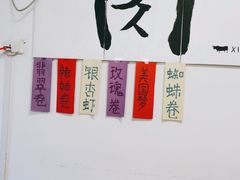 翡翠卷
辣妹卷
银杏虾
玫瑰卷
美国梦
蜘蛛卷
XI